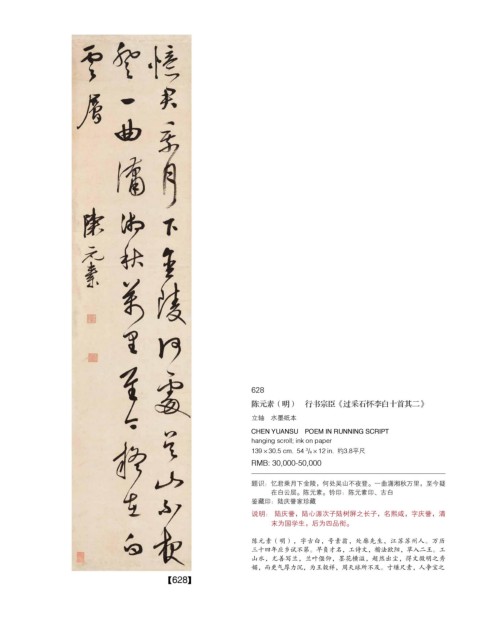 憶君乘月下金陵何處吳山不夜
登一曲瀟湘秋萬里至今疑在白
雲層
陳元素
【628】
628
陈元素（明） 行书宗臣《过采石怀李白十首其二》
立轴 水墨纸本
CHEN YUANSU POEM IN RUNNING SCRIPT
hanging scroll, ink on paper
139×30.5 cm. 54 3/4×12 in. 约3.8平尺
RMB: 30,000-50,000
题识：忆君乘月下金陵，何处吴山不夜登。一曲潇湘秋万里，至今疑
在白云层。陈元素。钤印：陈元素印、古白
鉴藏印：陆庆誉家珍藏
说明： 陆庆誉，陆心源次子陆树屏之长子，名熙咸，字庆誉，清
末为国学生，后为四品衔。
陈元素（明），字古白，号素翁，处廓先生，江苏苏州人。万历
三十四年应乡试不第。早负才名，工诗文，楷法欧阳，草入二王。工
山水，尤善写兰，兰叶偃仰，墨花横溢，超然出尘，得文徵明之秀
媚，而更气厚力沉，为王毂祥，周天球所不及。寸缣尺素，人争宝之